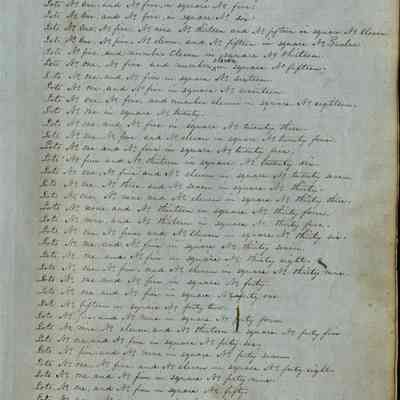 Lots No one, and No five, in square No five.
Lots No one, and No five, in square No six.
Lots No one, No five, No nine No thirteen and No fifteen in square No eleven
Lots No one, No eleven, and No fifteen in square No Twelve.
Lots No five, and number eleven in square No thirteen.
Lots No one, No five, and number eleven in square No fifteen.
Lots No one, and No five in square No sixteen.
Lots No one, and No five in square No seventeen
Lots No one, No five, and number eleven in square No eighteen.
Lots No one in square No twenty.
Lots No one and No five in square No twenty three.
Lots No one No five and No eleven in square No twenty four
Lots No one and No five in square No twenty five.
Lots No five and No thirteen in square No twenty six
Lots No one, No five and No eleven in square No twenty seven
Lots No one, No three and No seven in square No thirty.
Lots No one, No nine and No eleven in square No thirty three.
Lots No nine and No thirteen in square No thirty four
Lots No nine, and No thirteen in square No thirty five.
Lots No one No five and No eleven in square No thirty six.
Lots No one and No five in square No thirty seven.
Lots No one and No five in square No thirty eight.
Lots No one, No five, and No eleven in square No thirty nine
Lots No one and No five in square No forty
Lots No one and No five in square No forty one
Lot No fifteen in square No forty two.
Lots No and No nine in square No forty four
Lots No nine, No eleven and No thirteen square No forty five
Lots No one and No five in square No forty six.
Lots No five, and No nine in square No forty seven
Lots No one, No five, and No eleven in square No forty eight
Lots No one, and No five in square No forty nine
Lots No one, and No five in square No fifty